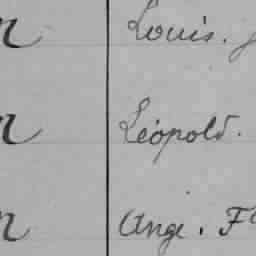 n Louis.
n Léopold.
n Ange. F